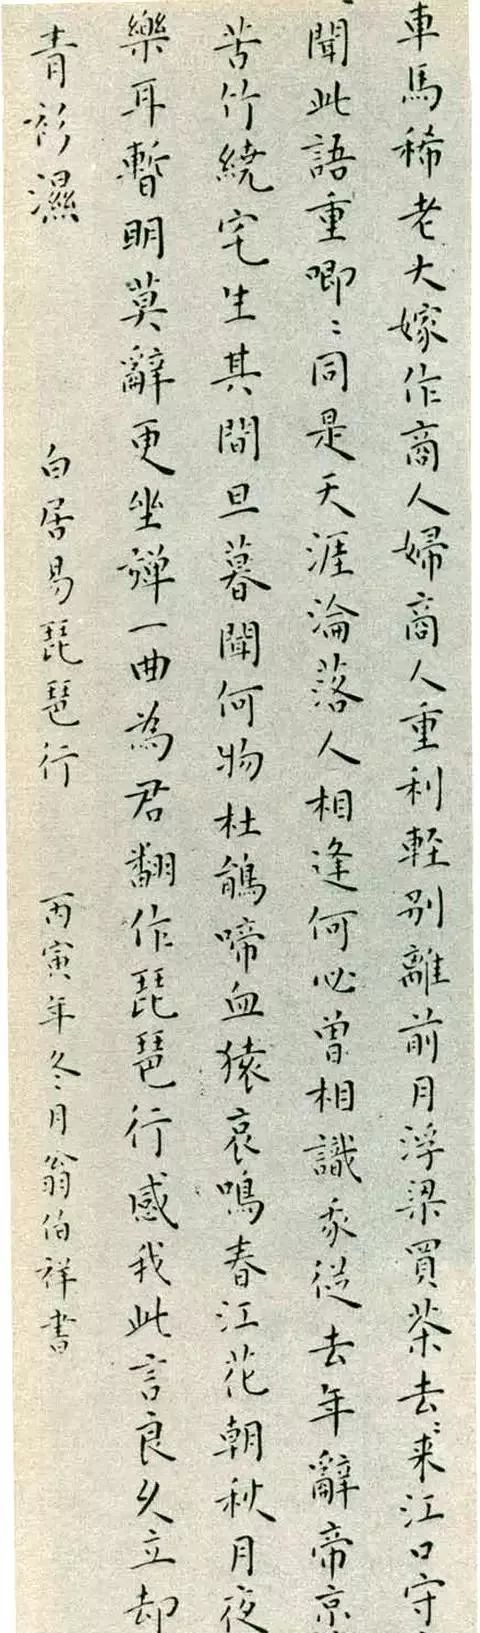 車馬稀老大嫁作商人婦商人重利輕別離前月浮梁買茶去〻来江口守
聞此語重唧〻同是天涯淪落人相逢何必曾相識我從去年辭帝京
苦竹繞宅生其間旦暮聞何物杜鵑啼血猿哀鳴春江花朝秋月夜
樂耳暫明莫辭更坐彈一曲為君翻作琵琶行感我此言良久立却
青衫濕
白居易琵琶行 丙寅年冬月翁伯祥書